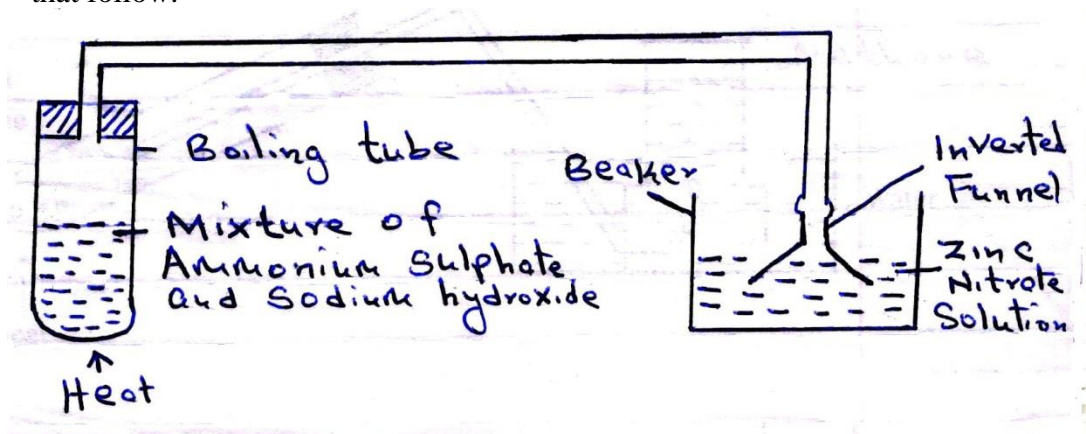 that follow.
Boiling tube
Mixture of
Ammonium Sulphate
and Sodium hydroxide
Heat
Beaker
Inverted
Funnel
Zinc
Nitrate
Solution